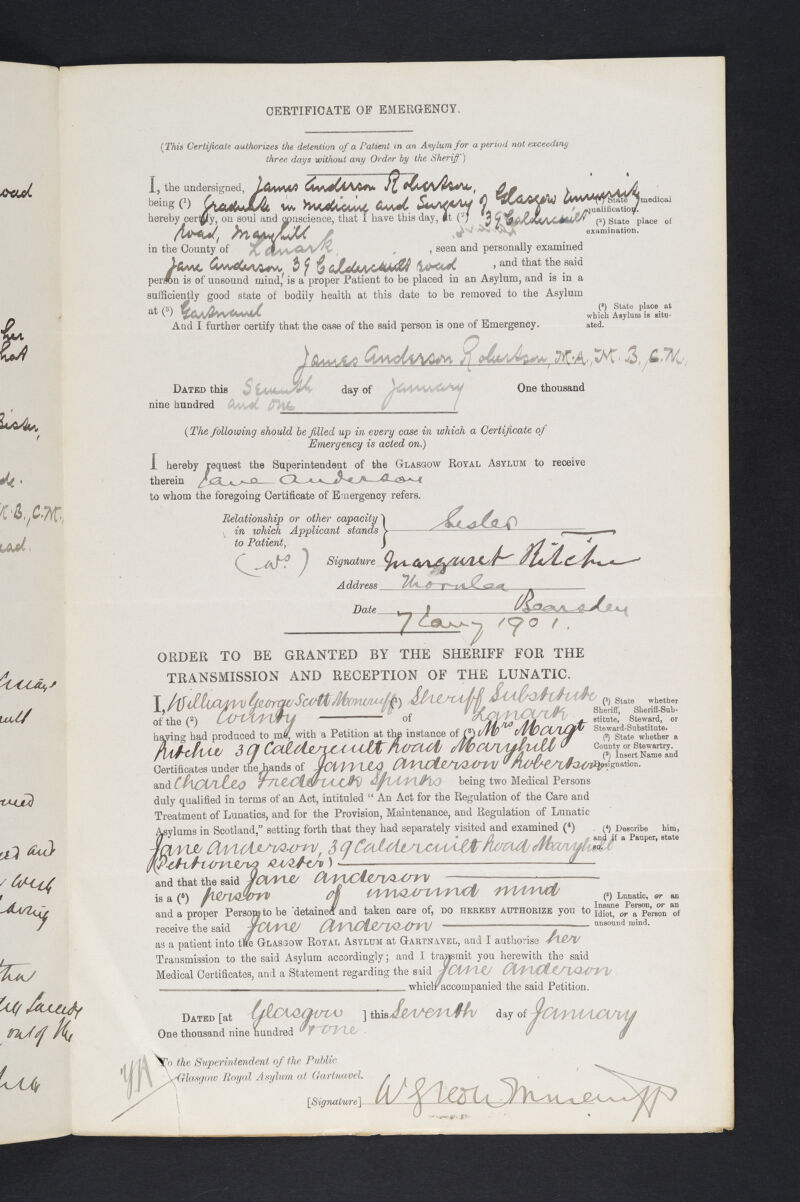 CERTIFICATE OF EMERGENCY.
(This Certificate authorizes the detention of a Patient in an Asylum for a period not exceeding
three days without any Order by the Sheriff)
I, the undersigned, James Anderson Robertson,
being (¹) Graduate in Medicine and Surgery of Glasgow University
(¹) State medical
qualification.
hereby certify, on soul and conscience, that I have this day, at (²) 39 Caldercuilt
Road, Maryhill
(²) State place of
examination.
in the County of Lanark , seen and personally examined
Jane Anderson, 39 Caldercuilt road , and that the said
person is of unsound mind, is a proper Patient to be placed in an Asylum, and is in a
sufficiently good state of bodily health at this date to be removed to the Asylum
at (³) Gartnavel
(³) State place at
which Asylum is situ-
ated.
And I further certify that the case of the said person is one of Emergency.
James Anderson Robertson, M.A., M.B., C.M.
DATED this Seventh day of January One thousand
nine hundred and one
(The following should be filled up in every case in which a Certificate of
Emergency is acted on.)
I hereby request the Superintendent of the GLASGOW ROYAL ASYLUM to receive
therein Jane Anderson
to whom the foregoing Certificate of Emergency refers.
Relationship or other capacity
in which Applicant stands
to Patient,
Sister
Signature Margaret Ritchie
Address Thornlea
Bearsden
Date 7 Jany 1901.
ORDER TO BE GRANTED BY THE SHERIFF FOR THE
TRANSMISSION AND RECEPTION OF THE LUNATIC.
I, William George Scott Moncrieff (¹) Sheriff Substitute
of the (²) County of Lanark
(¹) State whether
Sheriff, Sheriff-Sub-
stitute, Steward, or
Steward-Substitute.
having had produced to me, with a Petition at the instance of (³) Mrs Margt
Ritchie 39 Caldercuilt Road Maryhill
(²) State whether a
County or Stewartry.
(³) Insert Name and
Designation.
Certificates under the hands of James Anderson Robertson
and Charles Frederick Spinks being two Medical Persons
duly qualified in terms of an Act, intituled " An Act for the Regulation of the Care and
Treatment of Lunatics, and for the Provision, Maintenance, and Regulation of Lunatic
Asylums in Scotland," setting forth that they had separately visited and examined (⁴)
(⁴) Describe him,
and if a Pauper, state
so.
Jane Anderson, 39 Caldercuilt Road Maryhill
(Petitioners sister)
and that the said Jane Anderson
is a (⁵) person of unsound mind
(⁵) Lunatic, or an
Insane Person, or an
Idiot, or a Person of
unsound mind.
and a proper Person to be detained and taken care of, DO HEREBY AUTHORIZE you to
receive the said Jane Anderson
as a patient into the GLASGOW ROYAL ASYLUM at GARTNAVEL, and I authorise her
Transmission to the said Asylum accordingly; and I transmit you herewith the said
Medical Certificates, and a Statement regarding the said Jane Anderson
which accompanied the said Petition.
DATED [at Glasgow ] this Seventh day of January
One thousand nine hundred & one.
To the Superintendent of the Public
Glasgow Royal Asylum at Gartnavel.
[Signature] W G Scott Moncrieff